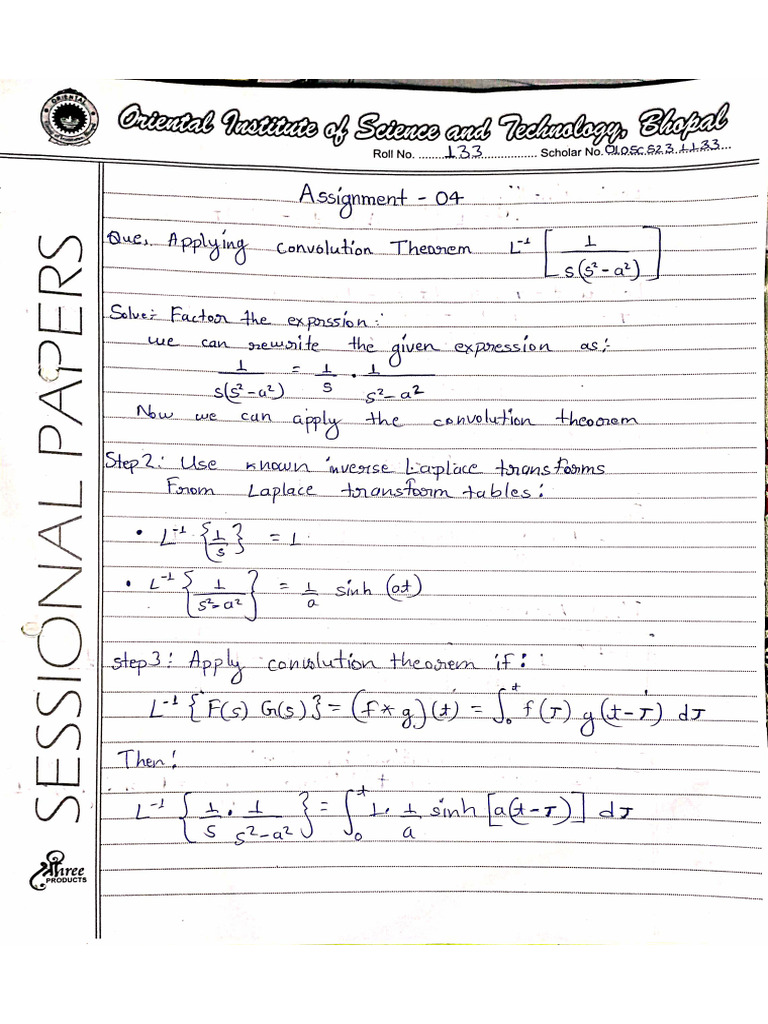 Oriental Institute of Science and Technology, Bhopal
Roll No. ........133................ Scholar No. 0105CS231133...
SESSIONAL PAPERS
Assignment - 04
Que. Applying Convolution Theorem L⁻¹ [ 1 / s(s² - a²) ]
Solve:- Factor the exprssion:
we can rewrite the given expression as:-
1 / s(s² - a²) = 1/s . 1 / s² - a²
Now we can apply the convolution theorem
Step 2: Use known inverse Laplace transforms
From Laplace transform tables:
• L⁻¹ {1/s} = 1
• L⁻¹ {1 / s² - a²} = 1/a sinh (at)
Step 3: Apply convolution theorem if:
L⁻¹ {F(s) G(s)} = (f * g)(t) = ∫₀ᵗ f(τ) g(t-τ) dτ
Then:
L⁻¹ {1/s . 1 / s² - a²} = ∫₀ᵗ 1. 1/a sinh [a(t-τ)] dτ
श्रीhree
PRODUCTS